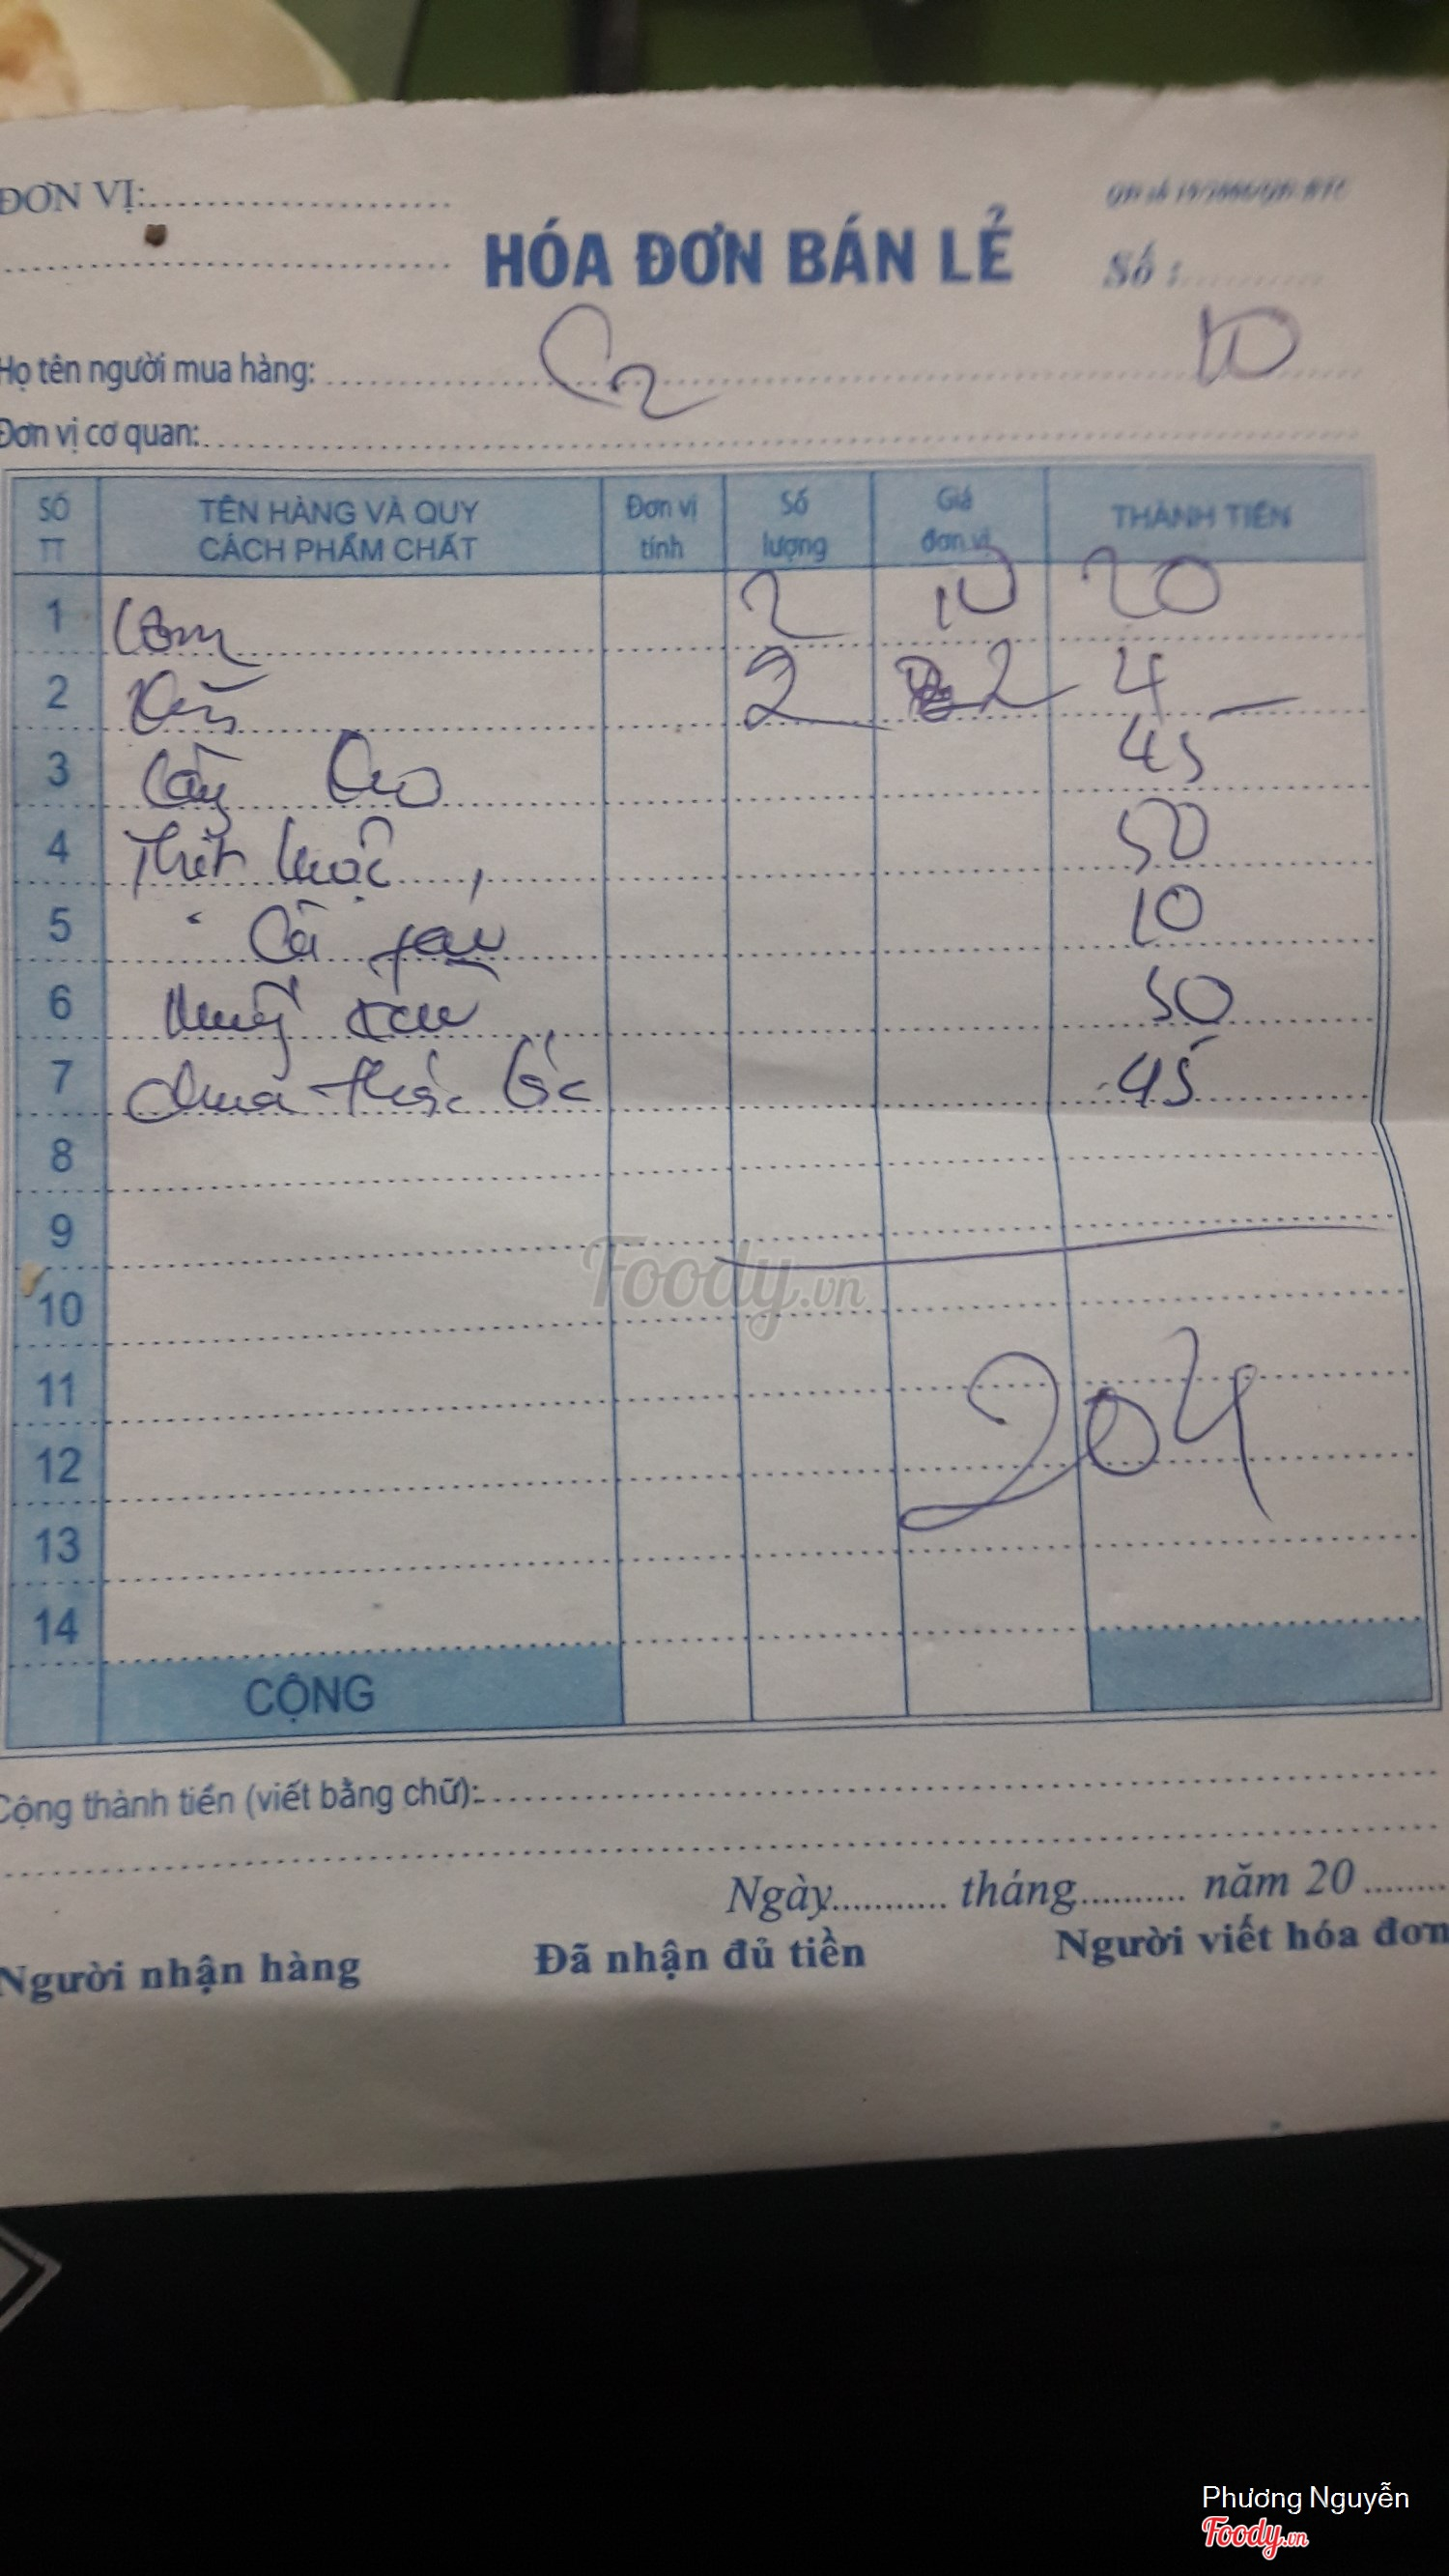 ĐƠN VỊ:
HÓA ĐƠN BÁN LẺ
Số :
Họ tên người mua hàng: 10
Đơn vị cơ quan:
SỐ TT TÊN HÀNG VÀ QUY CÁCH PHẨM CHẤT Đơn vị tính Số lượng Giá đơn vị THÀNH TIỀN
1 Cơm 2 10 20
2 Khăn 2 2 4
3 45
4 Thịt luộc 50
5 Cà 10
6 50
7 chua thác lác 45
8
9
10
11
204
12
13
14
CỘNG
Cộng thành tiền (viết bằng chữ):
Ngày tháng năm 20
Người nhận hàng Đã nhận đủ tiền Người viết hóa đơn
Foody.vn
Phương Nguyễn
Foody.vn